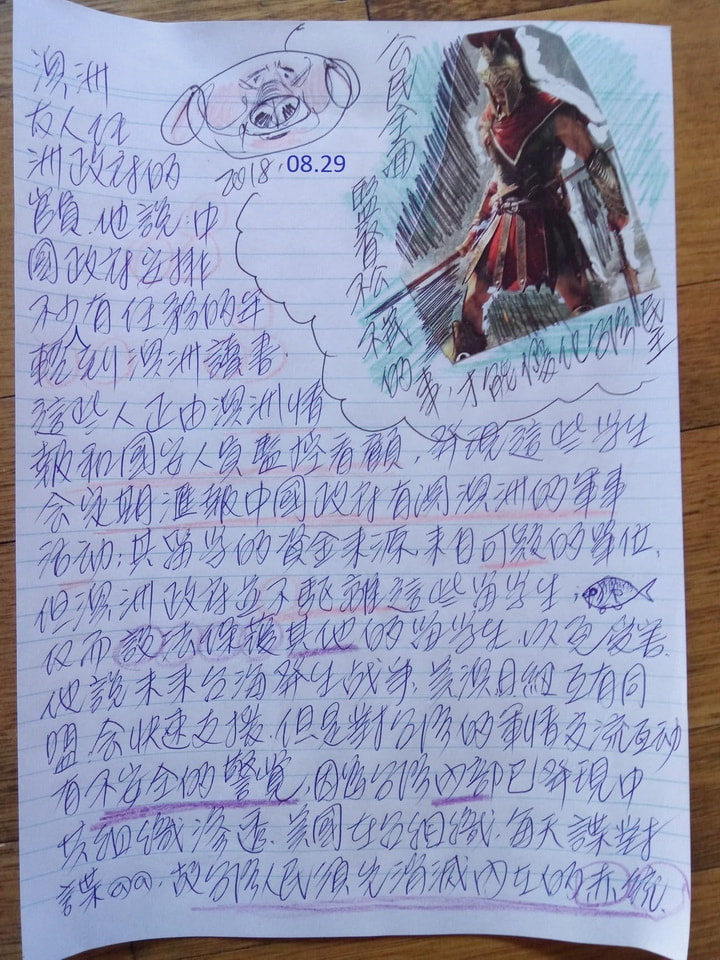 澳洲
友人任
洲政府的
官員.他說:中
國政府安排
不少有任務的年
輕人到澳洲讀書.
這些人正由澳洲情
報和國安人員監控看顧,發現這些学生
会定期滙報中國政府有関澳洲的軍事
活动;其留学的資金来源来自可疑的單位.
但澳洲政府並不駆離這些留学生,
反而設法保護其他的留学生,以免受害.
他說未来台海發生战争,美澳日紐互有同
盟.会快速支援.但是對台湾的軍情交流互动
有不安全的警覚,因為台湾內部已發現中
共組織滲透.美國在台組織.每天諜對
諜QQ.故台湾人民須先消滅內在的赤統.
2018.08.29
公民全面
監督不公
不義
的事,才能優化台湾民主